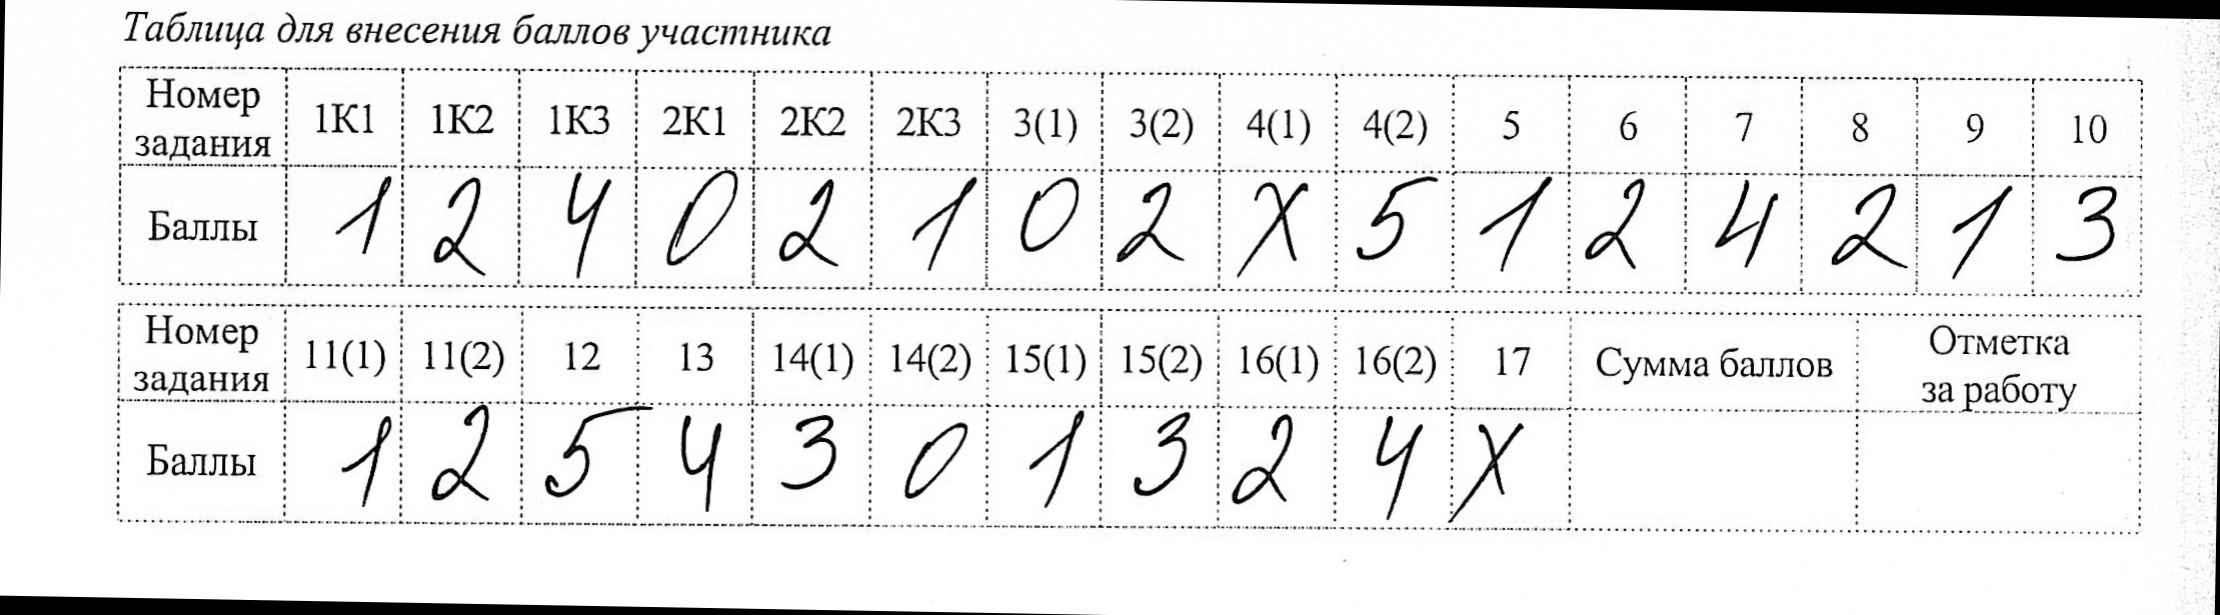 Таблица для внесения баллов участника
Номер задания 1К1 1К2 1К3 2К1 2К2 2К3 3(1) 3(2) 4(1) 4(2) 5 6 7 8 9 10
Баллы 1 2 4 0 2 1 0 2 X 5 1 2 4 2 1 3
Номер задания 11(1) 11(2) 12 13 14(1) 14(2) 15(1) 15(2) 16(1) 16(2) 17 Сумма баллов Отметка за работу
Баллы 1 2 5 4 3 0 1 3 2 4 X